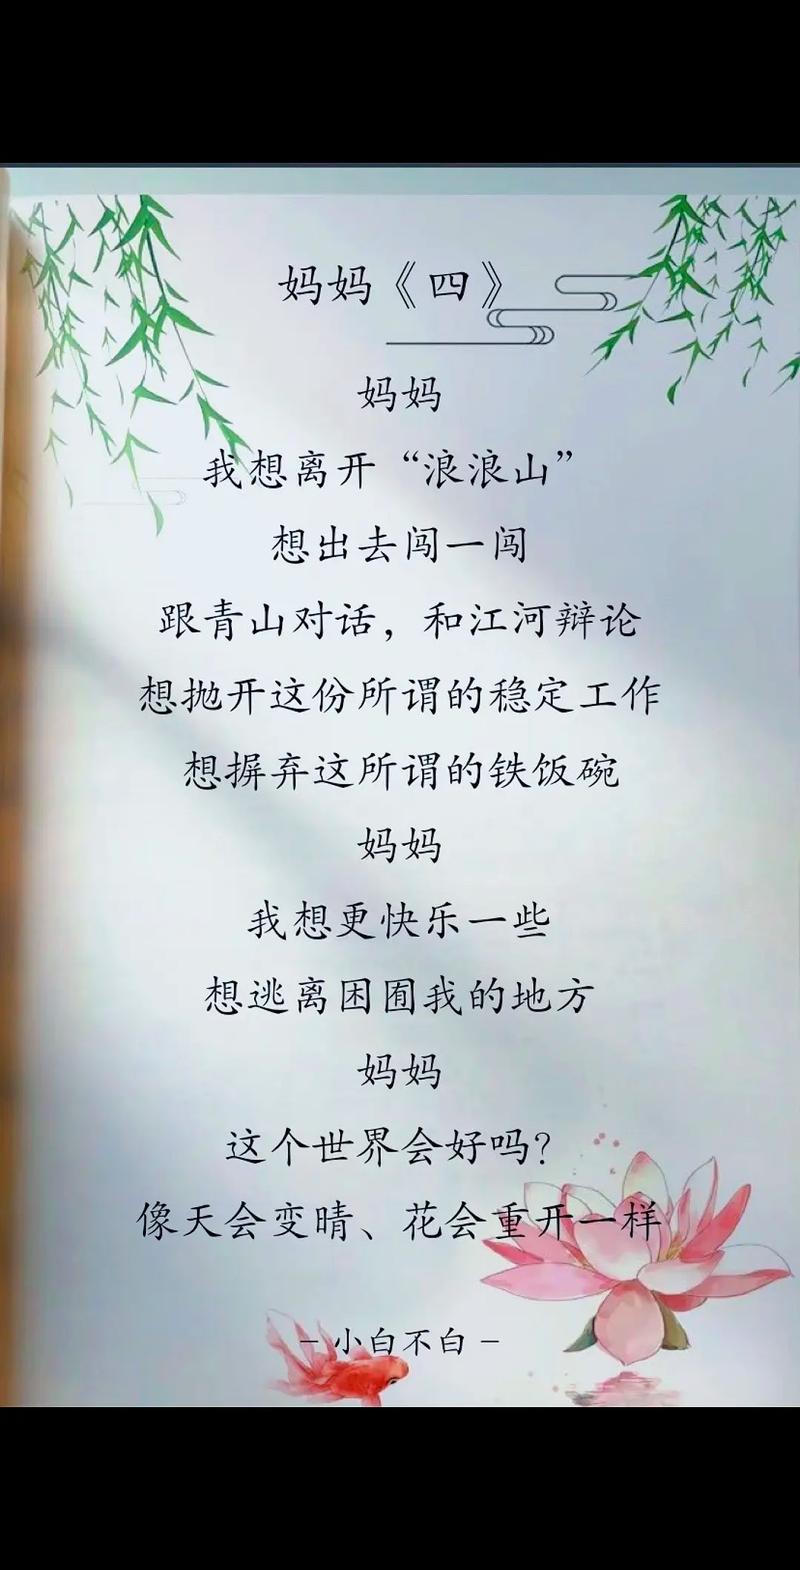 妈妈《四》
妈妈
我想离开“浪浪山”
想出去闯一闯
跟青山对话，和江河辩论
想抛开这份所谓的稳定工作
想摒弃这所谓的铁饭碗
妈妈
我想更快乐一些
想逃离困囿我的地方
妈妈
这个世界会好吗？
像天会变晴、花会重开一样
– 小白不白 –